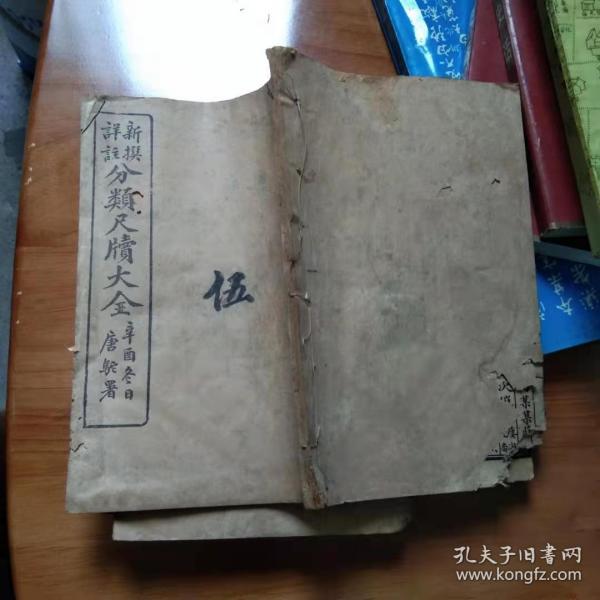 新撰
詳註
分類尺牘大全
辛酉冬日
唐駝署
伍
某某
孔夫子旧书网
www.kongfz.com